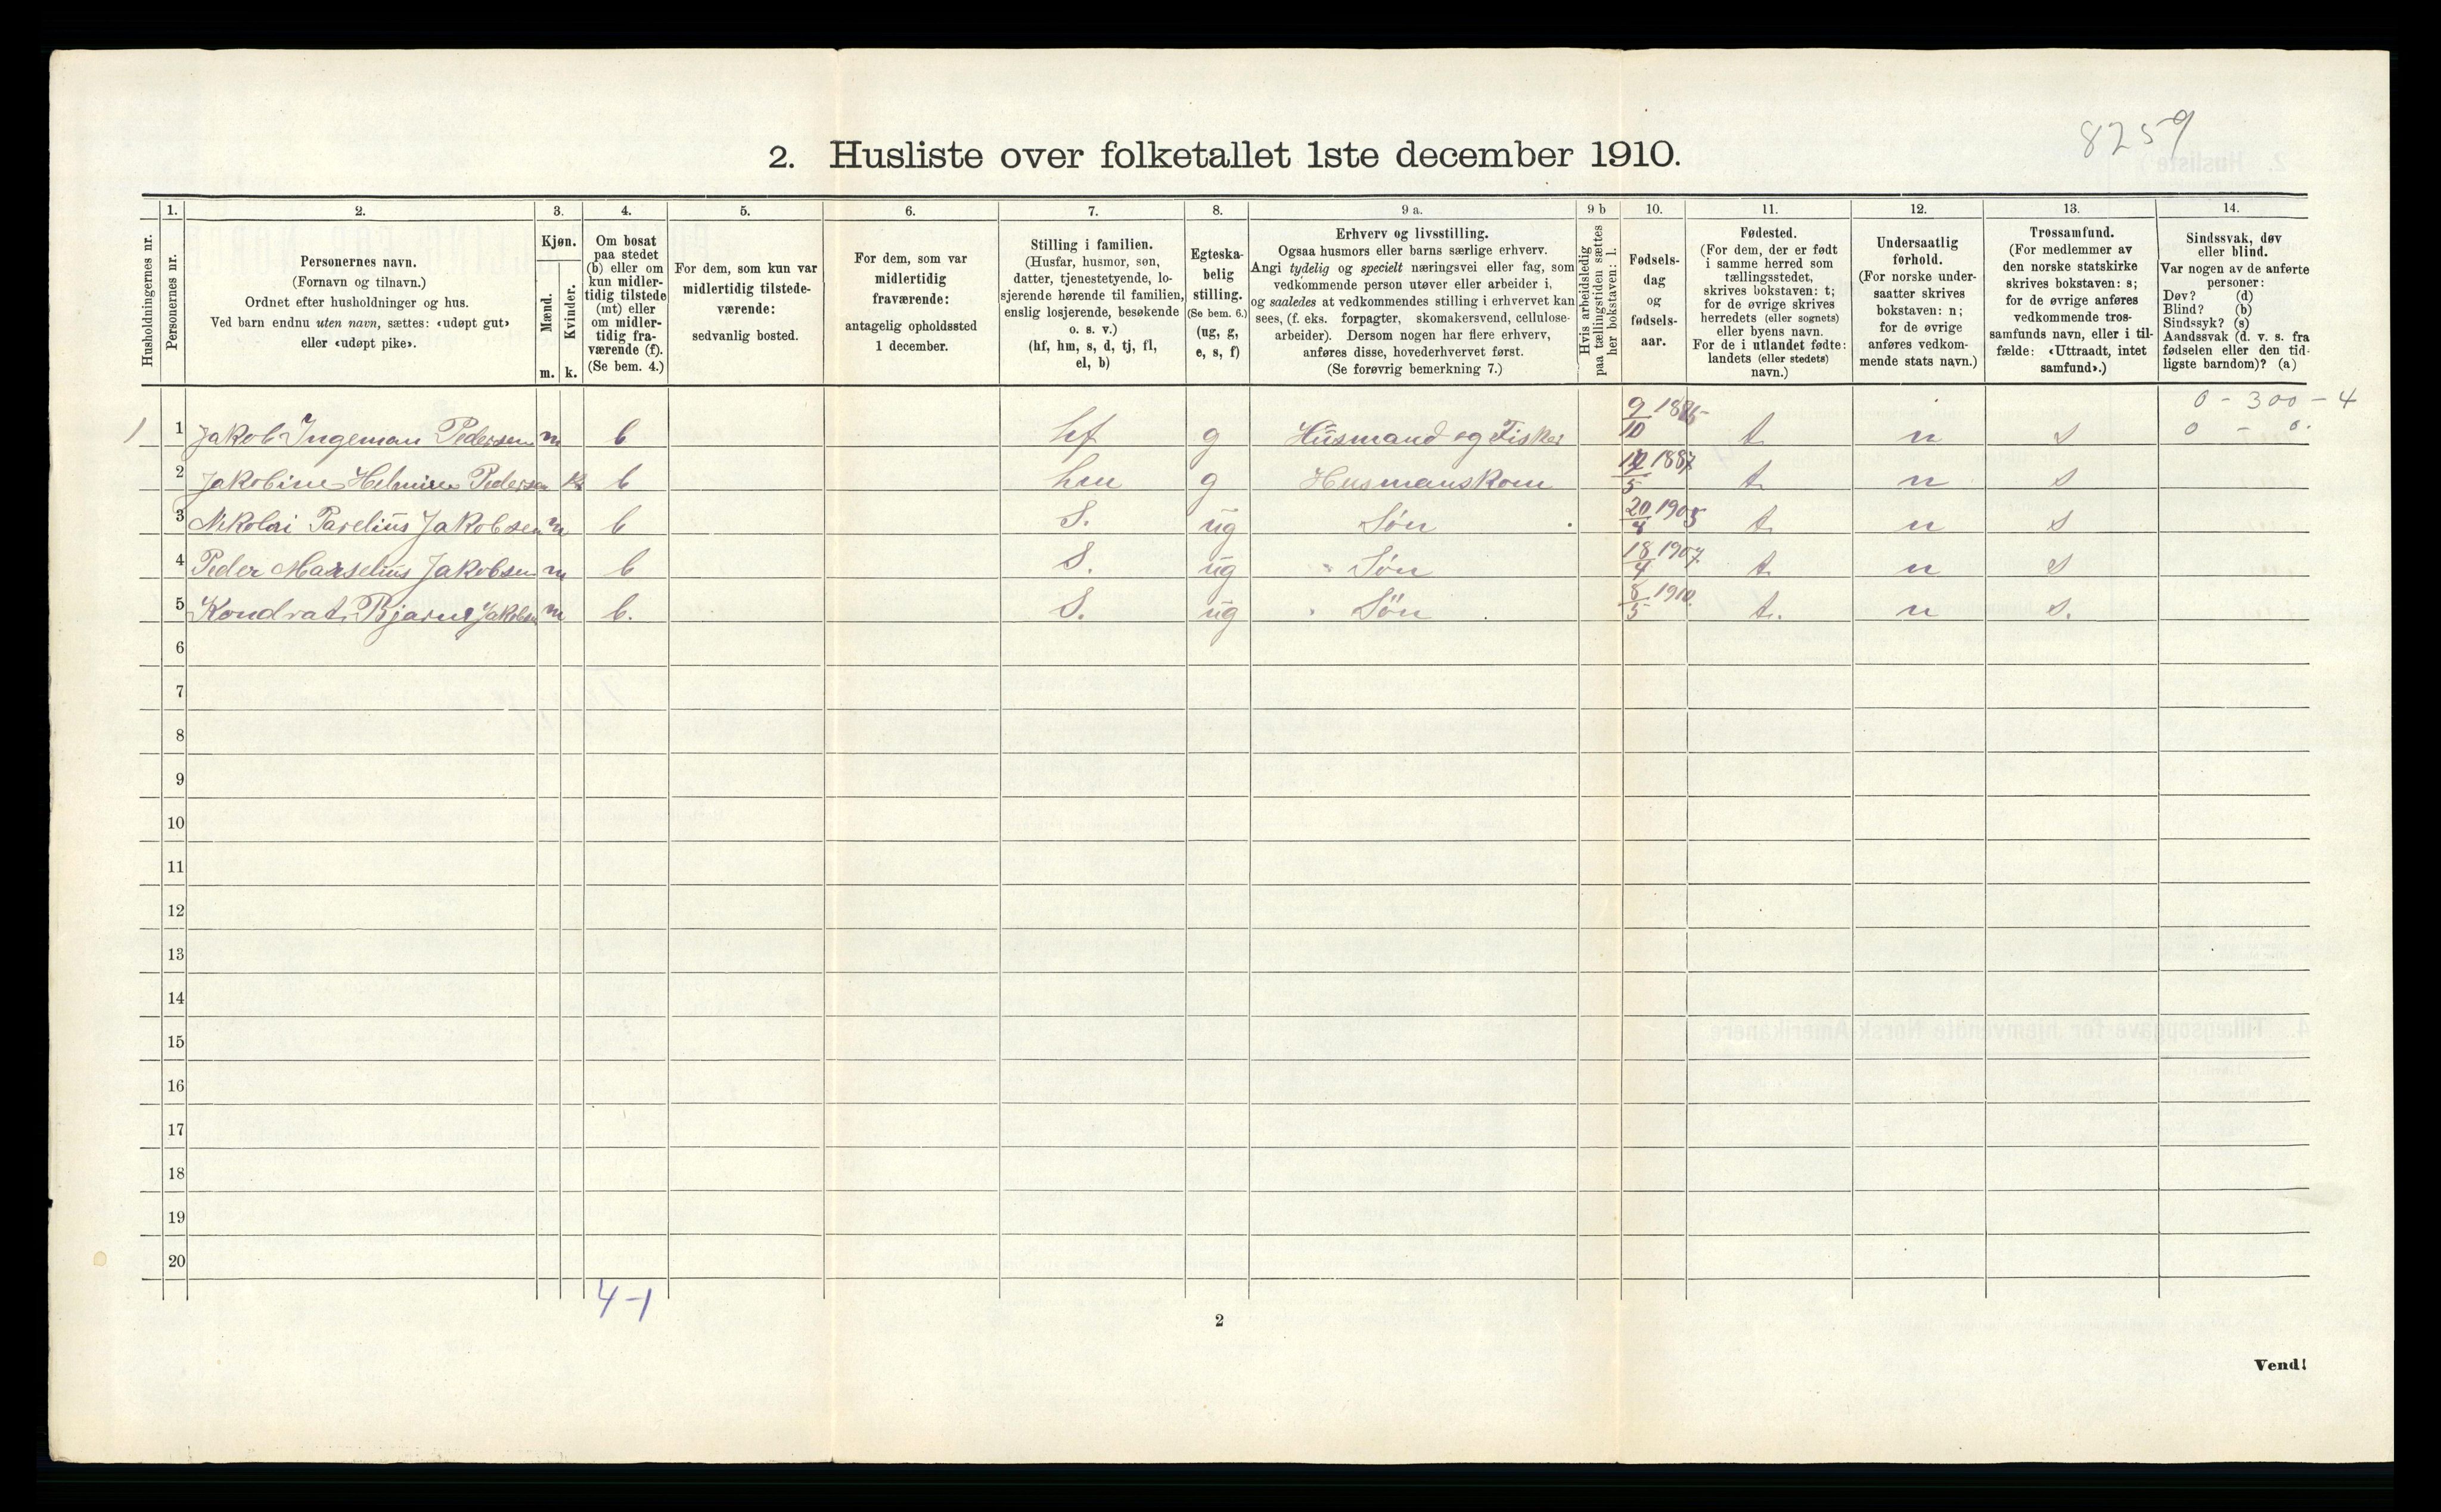 8259
2. Husliste over folketallet 1ste december 1910.
Husholdningernes nr.
1.
Personernes nr.
2.
Personernes navn.
(Fornavn og tilnavn.)
Ordnet efter husholdninger og hus.
Ved barn endnu uten navn, sættes: «udøpt gut»
eller «udøpt pike».
3.
Kjøn.
Mænd.
Kvinder.
m. k.
4.
Om bosat
paa stedet
(b) eller om
kun midler-
tidig tilstede
(mt) eller
om midler-
tidig fra-
værende (f).
(Se bem. 4.)
5.
For dem, som kun var
midlertidig tilstede-
værende:
sedvanlig bosted.
6.
For dem, som var
midlertidig
fraværende:
antagelig opholdssted
1 december.
7.
Stilling i familien.
(Husfar, husmor, søn,
datter, tjenestetyende, lo-
sjerende hørende til familien,
enslig losjerende, besøkende
o. s. v.)
(hf, hm, s, d, tj, fl,
el, b)
8.
Egteska-
belig
stilling.
(Se bem. 6.)
(ug, g,
e, s, f)
9 a.
Erhverv og livsstilling.
Ogsaa husmors eller barns særlige erhverv.
Angi tydelig og specielt næringsvei eller fag, som
vedkommende person utøver eller arbeider i,
og saaledes at vedkommendes stilling i erhvervet kan
sees, (f. eks. forpagter, skomakersvend, cellulose-
arbeider). Dersom nogen har flere erhverv,
anføres disse, hovederhvervet først.
(Se forøvrig bemerkning 7.)
9 b
Hvis arbeidsledig
paa tællingstiden sættes
her bokstaven: l.
10.
Fødsels-
dag
og
fødsels-
aar.
11.
Fødested.
(For dem, der er født
i samme herred som
tællingsstedet,
skrives bokstaven: t;
for de øvrige skrives
herredets (eller sognets)
eller byens navn.
For de i utlandet fødte:
landets (eller stedets)
navn.)
12.
Undersaatlig
forhold.
(For norske under-
saatter skrives
bokstaven: n;
for de øvrige
anføres vedkom-
mende stats navn.)
13.
Trossamfund.
(For medlemmer av
den norske statskirke
skrives bokstaven: s;
for de øvrige anføres
vedkommende tros-
samfunds navn, eller i til-
fælde: «Uttraadt, intet
samfund».)
14.
Sindssvak, døv
eller blind.
Var nogen av de anførte
personer:
Døv? (d)
Blind? (b)
Sindssyk? (s)
Aandssvak (d. v. s. fra
fødselen eller den tid-
ligste barndom)? (a)
0 - 300 - 4
0 - 0.
1 1 Jakob Ingeman Pedersen m b hf g Husmand og Fisker 9/10 t. n s
2 Jakobine Helmine Pedersen k b hm g Husmanskone 5 1887 t. n s
3 Nikolai Parelius Jakobsen m b S. ug Søn 20/4 1905 t. n s
4 Peder Marselius Jakobsen m b S. ug Søn 18/4 1907. t. n s
5 Kondrat Bjarne Jakobsen m b. S. ug Søn 8/5 1910. t. n s.
6
7
8
9
10
11
12
13
14
15
16
17
18
19
20
4-1
2
Vend!